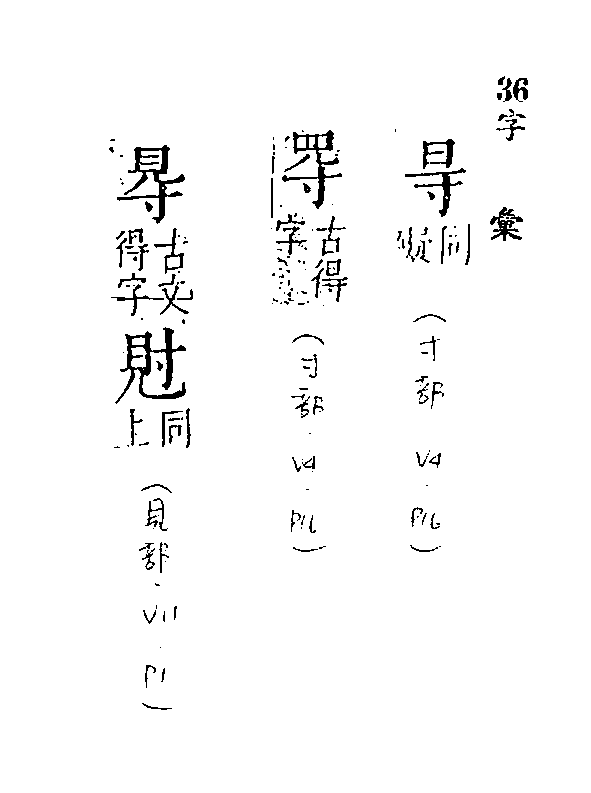 36 字彙
㝵
同礙
(寸部．V4．P16)
古得字
(寸部．V4．P16)
䙸
古文得字
䙷
同上
(見部．V11．P1)